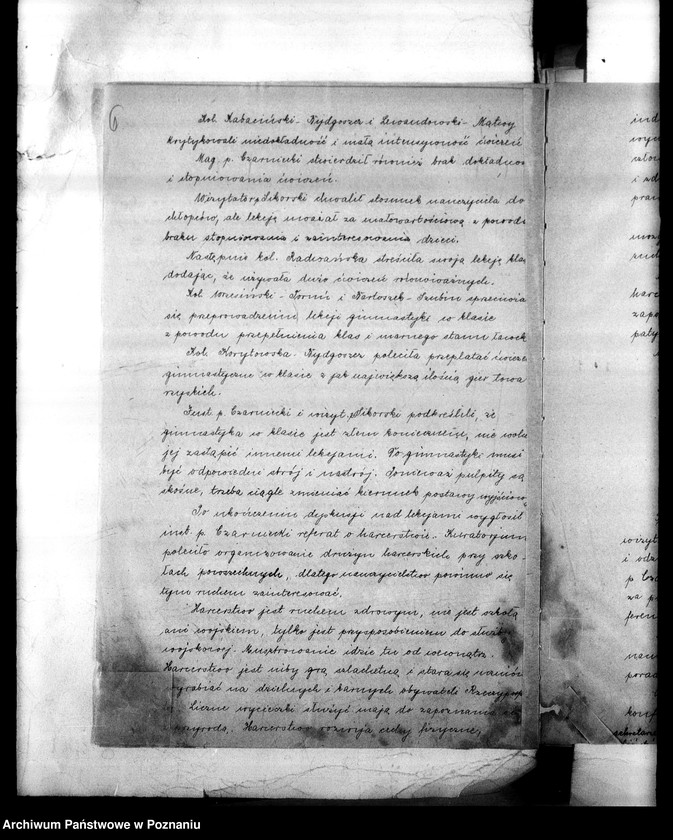 6
Kol. Kabaciński - Bydgoszcz i Lewandowski - Mątwy
krytykowali niedokładność i małą intensywność ćwiczeń
Mag. p. Czarnecki stwierdził również brak dokładnoś
i stopniowania ćwiczeń.
Wizytator p. Sikorski chwalił stosunek nauczyciela do
chłopców, ale lekcję uważał za małowartościową z powodu
braku stopniowania i zainteresowania dzieci.
Następnie kol. streściła swoją lekcję klas
dodając, że używała dużo ćwiczeń równoważnych.
Kol. - i - Szubin
się przeprowadzeniu lekcji gimnastyki w klasie
z powodu przepełnienia klas i marnego stanu ławek
Kol. Korytowska - Bydgoszcz poleciła przeplatać ćwicze
gimnastyczne w klasie z jak największą ilością gier towa
rzyskich.
Inst. p. Czarnecki i wizyt. p. Sikorski podkreślili, że
gimnastyka w klasie jest złem koniecznem, nie wolno
jej zastąpić innemi lekcjami. Do gimnastyki musi
być odpowiedni strój i nastrój. Ponieważ pulpity są
skośne, trzeba ciągle zmieniać kierunek postawy wyjściowej
Po ukończeniu dyskusji nad lekcjami wygłosił
inst. p. Czarnecki referat o harcerstwie. Kuratorjum
poleciło organizowanie drużyn harcerskich przy szko-
łach powszechnych, dlatego nauczycielstwo powinno się
tym ruchem zainteresować.
Harcerstwo jest ruchem zdrowym, nie jest szkołą
ani wojskiem, tylko jest przysposobieniem do służby
wojskowej. Musztrowanie idzie tu od wewnątrz.
Harcerstwo jest niby grą szlachetną i stara się
wyrabiać na dzielnych i karnych obywateli Rzeczyposp
Liczne wycieczki służyć mają do zapoznania się
z przyrodą. Harcerstwo rozwija cechy fizyczne,
Archiwum Państwowe w Poznaniu